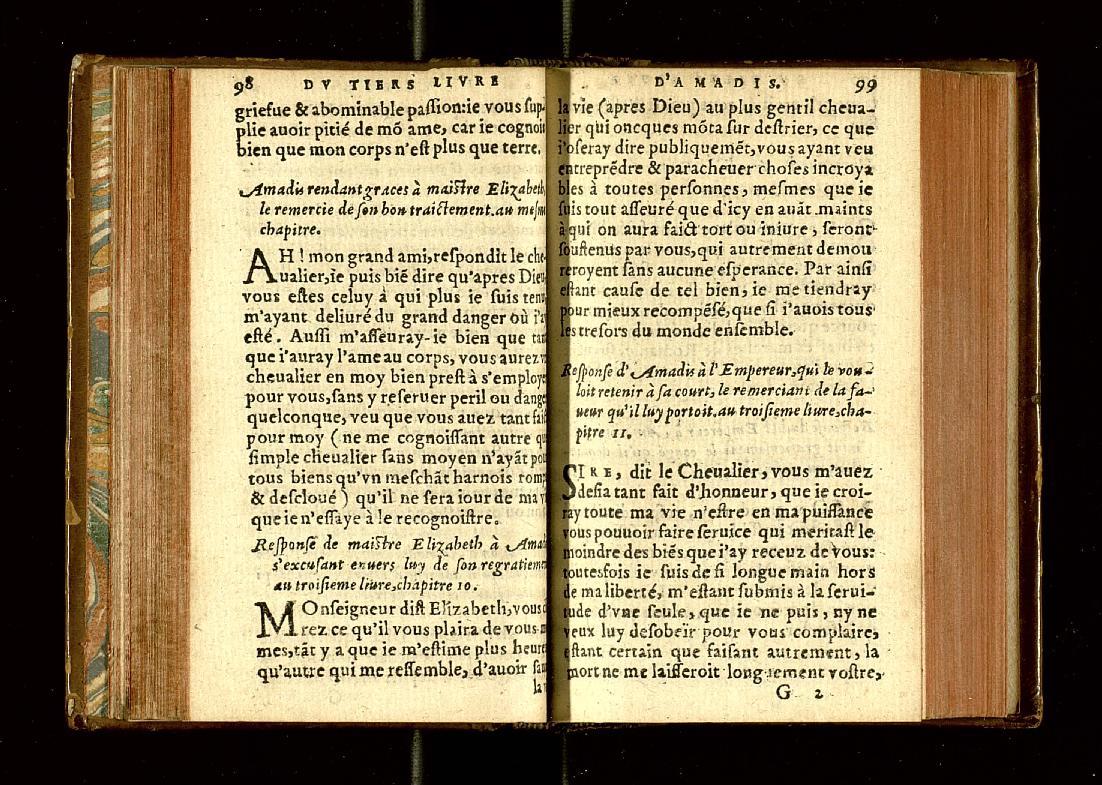 98 DV TIERS LIVRE
griefue & abominable paſſion:ie vous ſup-
plie auoir pitié de mõ ame, car ie cognoi
bien que mon corps n'eſt plus que terre.
Amadis rendant graces à maiſtre Elizabeth,
le remercie de ſon bon traictement.au meſm
chapitre.
AH ! mon grand ami,reſpondit le che-
ualier,ie puis biẽ dire qu'apres Dieu
vous eſtes celuy à qui plus ie ſuis tenu,
m'ayant deliuré du grand danger où i'a
eſté. Auſſi m'aſſeuray-ie bien que tan
que i'auray l'ame au corps, vous aurez v
cheualier en moy bien preſt à s'employe
pour vous,ſans y reſeruer peril ou dange
quelconque, veu que vous auez tant fait
pour moy ( ne me cognoiſſant autre qu
ſimple cheualier ſans moyen n'ayãt pou
tous biens qu'vn meſchãt harnois romp
& deſcloué ) qu'il ne ſera iour de ma v
que ie n'eſſaye à le recognoiſtre.
Reſponſe de maiſtre Elizabeth à Ama
s'excuſant enuers luy de ſon regratieme
au troiſieme liure,chapitre 10.
MOnſeigneur diſt Elizabeth,vous
rez ce qu'il vous plaira de vous-m
mes,tãt y a que ie m'eſtime plus heure
qu'autre qui me reſſemble, d'auoir ſau
la
D'AMADIS. 99
la vie (apres Dieu) au plus gentil cheua-
lier qui oncques mõta ſur deſtrier, ce que
i'oſeray dire publiquemẽt,vous ayant veu
entreprẽdre & paracheuer choſes incroya
bles à toutes perſonnes, meſmes que ie
ſuis tout aſſeuré que d'icy en auãt maints
à qui on aura faict tort ou iniure, ſeront
ſouſtenus par vous,qui autrement demou
reroyent ſans aucune eſperance. Par ainſi
eſtant cauſe de tel bien, ie me tiendray
pour mieux recompẽſé,que ſi i'auois tous
les treſors du monde enſemble.
Reſponſe d'Amadis à l'Empereur,qui le vou-
loit retenir à ſa court, le remerciant de la fa-
ueur qu'il luy portoit.au troiſieme liure,cha-
pitre 11.
SIRE, dit le Cheualier, vous m'auez
deſia tant fait d'honneur, que ie croi-
ray toute ma vie n'eſtre en ma puiſſance
vous pouuoir faire ſeruice qui meritaſt le
moindre des biẽs que i'ay receuz de vous:
toutesfois ie ſuis de ſi longue main hors
de ma liberté, m'eſtant ſubmis à la ſerui-
tude d'vne ſeule, que ie ne puis, ny ne
veux luy deſobeïr pour vous complaire,
eſtant certain que faiſant autrement, la
mort ne me laiſſeroit longuement voſtre,
G 2